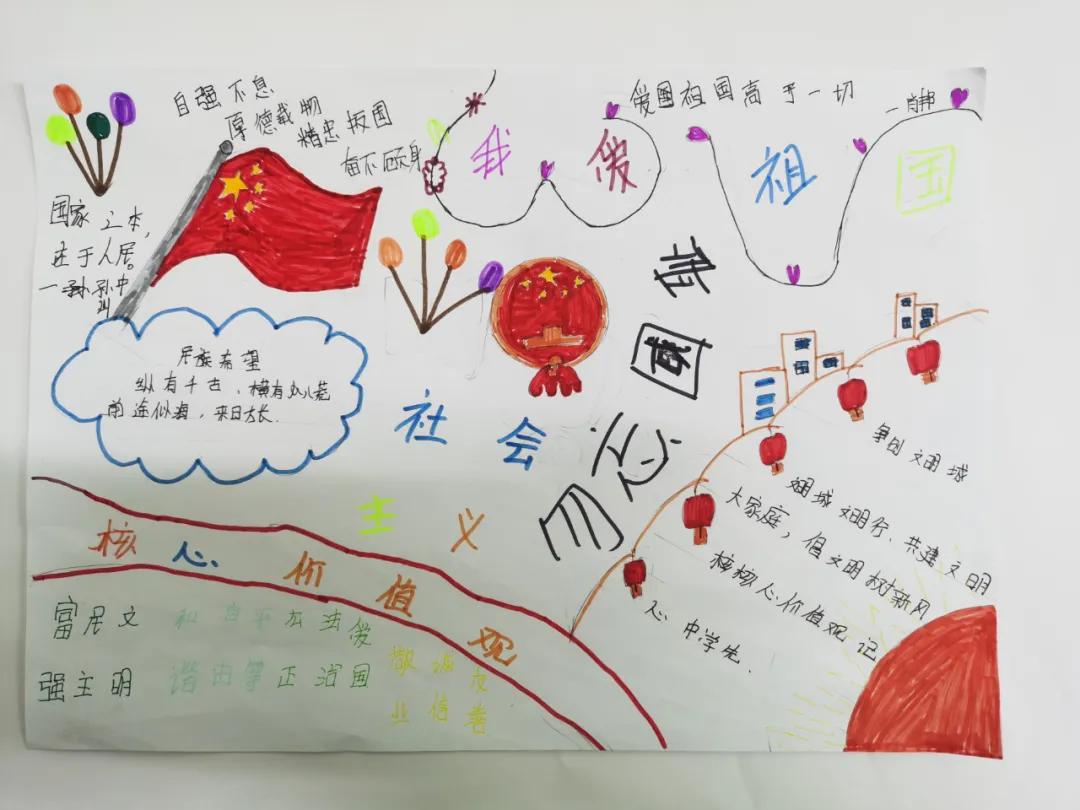 自强不息
厚德戴物
精忠报国
奋不顾身
我爱祖国
爱国祖国高于一切
国家之本,
在于人居。
一孙中
民族希望
纵有千古、横有八荒
前途似海,来日方长.
社会
主义
核心价值观
勿忘国
富民文
强主明
和自平公法爱
谐由等正治国
敬诚友
业信善
争创文明城
城文明行、共建文明
大家庭,但文明树新风
核核心价值观记
心中学先.